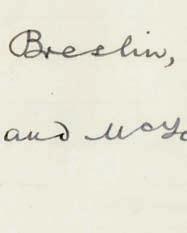 Breslin,
and McYo